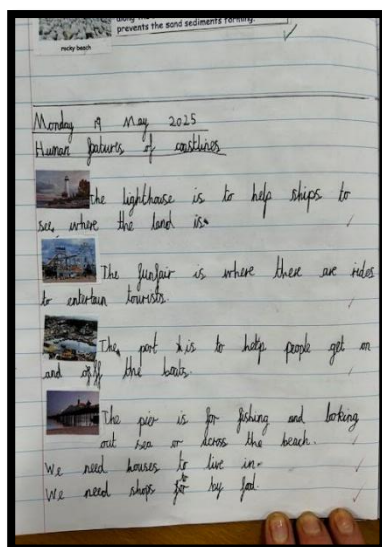 prevents the sand sediments forming.
rocky beach
Monday 19 May 2025
Human features of coastlines
the lighthouse is to help ships to
see where the land is.
The funfair is where there are rides
to entertain tourists.
The port is to help people get on
and off the boats.
The pier is for fishing and looking
out sea or across the beach.
We need houses to live in.
We need shops to by food.